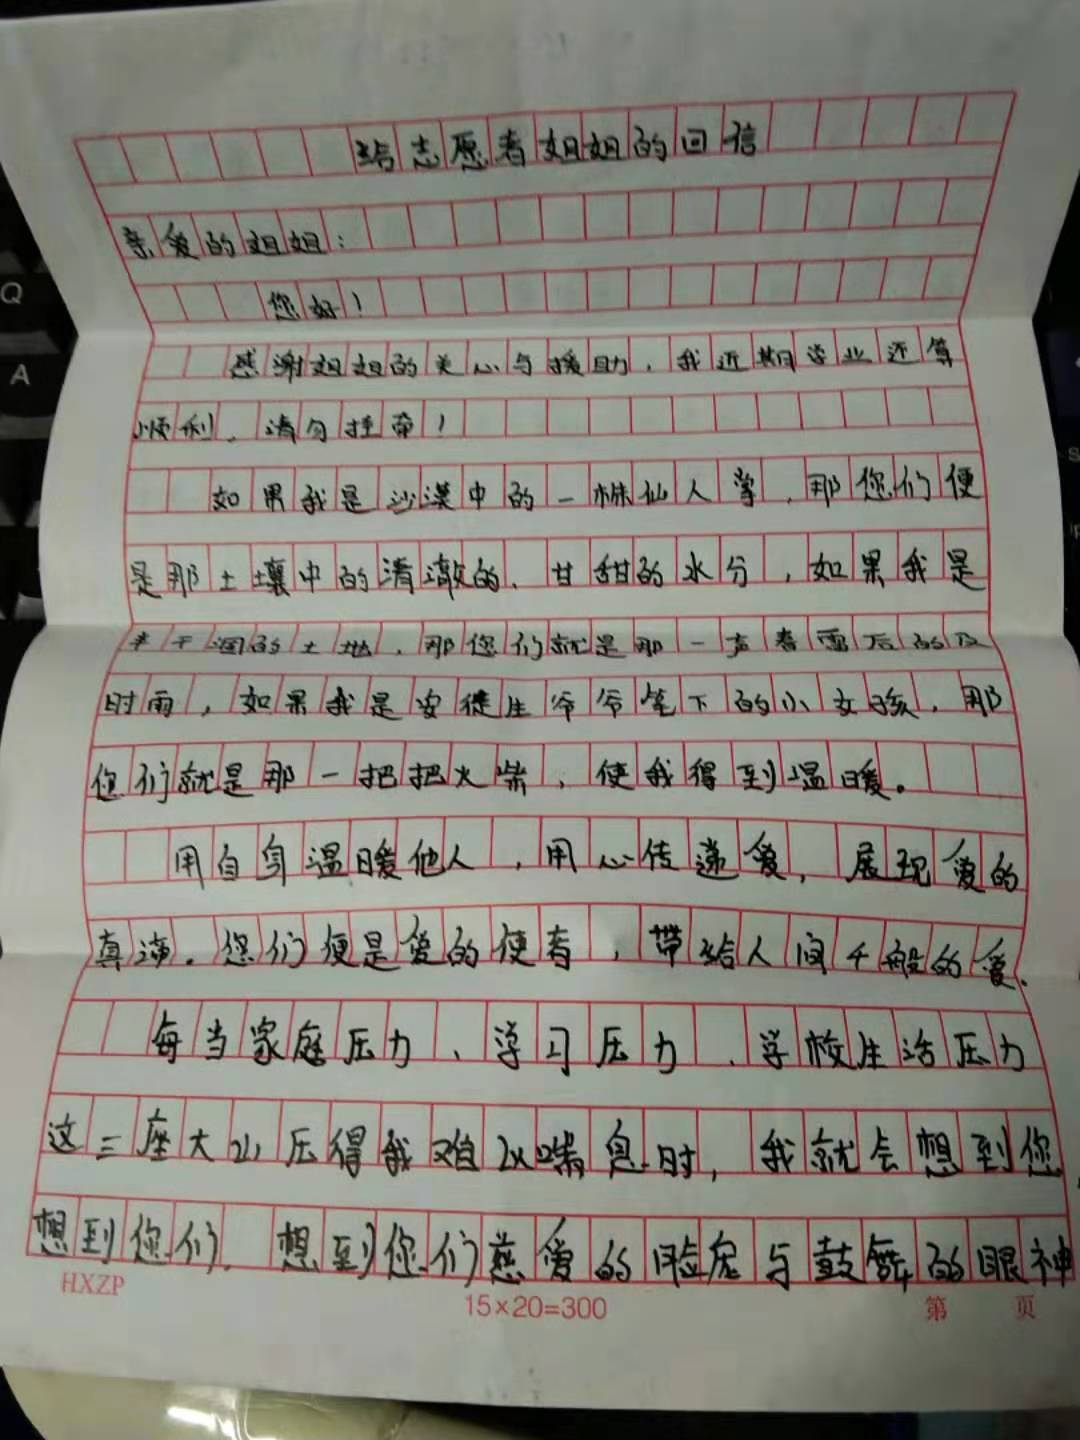 给志愿者姐姐的回信
亲爱的姐姐：
您好！
感谢姐姐的关心与援助，我近期学业还算
顺利，请勿挂牵！
如果我是沙漠中的一株仙人掌，那您们便
是那土壤中的清澈的、甘甜的水分，如果我是
干涸的土地，那您们就是那一声春雷后的及
时雨，如果我是安徒生爷爷笔下的小女孩，那
您们就是那一把把火柴，使我得到温暖。
用自身温暖他人，用心传递爱，展现爱的
真谛。您们便是爱的使者，带给人间千般的爱。
每当家庭压力、学习压力、学校生活压力
这三座大山压得我难以喘息时，我就会想到您，
想到您们，想到您们慈爱的脸庞与鼓舞的眼神
HXZP
15×20=300
第 页
Q
A